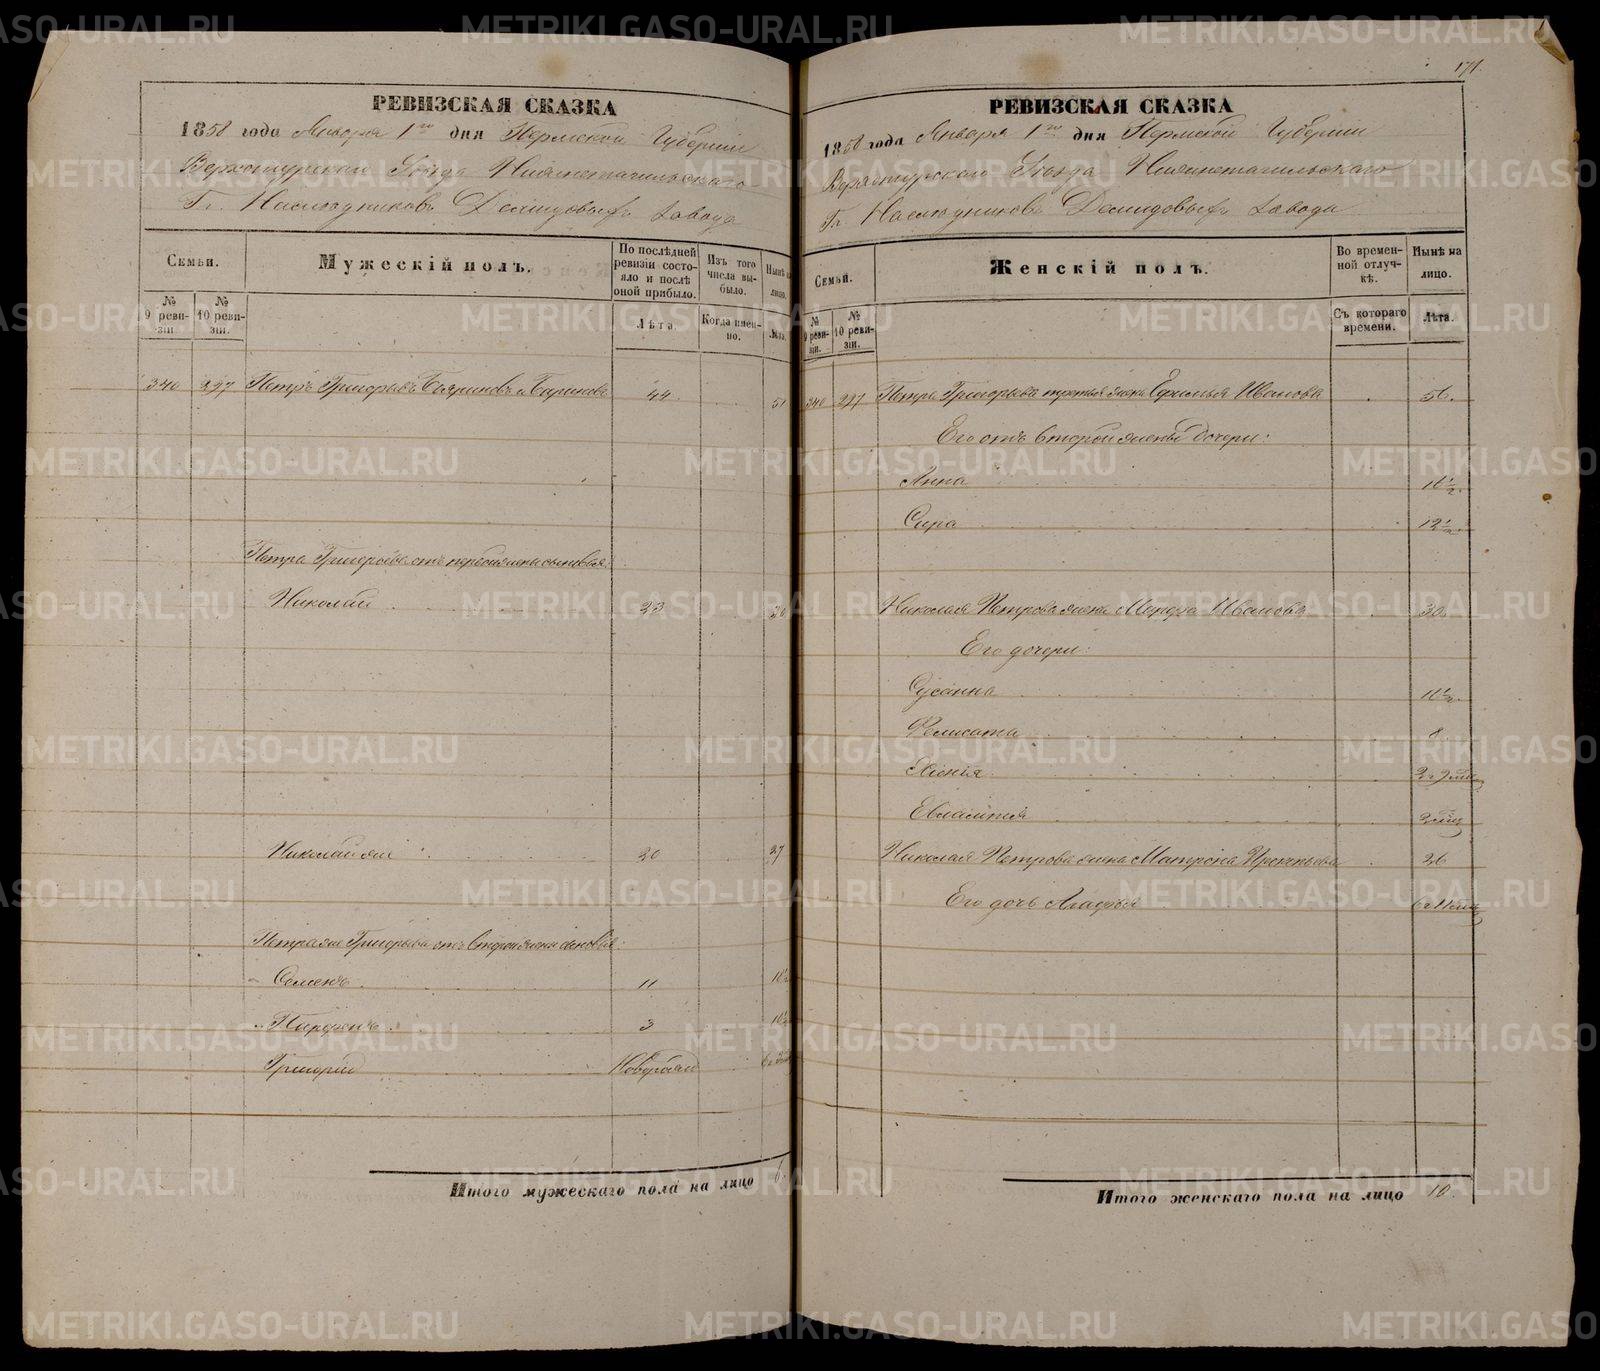 РЕВИЗСКАЯ СКАЗКА
1858 года Января 1го дня Пермской Губерніи
Верхотурскаго Уѣзда Нижнетагильскаго
Гг. Наслѣдниковъ Демидовыхъ завода
Семьи.
Мужескій полъ.
По послѣдней ревизіи состояло и послѣ оной прибыло.
Изъ того числа выбыло.
Нынѣ на лицо.
№ 9 ревизіи.
№ 10 ревизіи.
Лѣта.
Когда именно.
Лѣта.
340 297 Петръ Григорьевъ 44 51
Петра Григорьева отъ первой жены сыновья
Николай 23 30
Николай же 20 27
Петра же Григорьева отъ второй жены сыновья:
Семенъ 11 18½
Парфенъ 3 10½
Григорій Новорожд
Итого мужескаго пола на лицо 6.
171.
РЕВИЗСКАЯ СКАЗКА
1858 года Января 1го дня Пермской Губерніи
Верхотурскаго Уѣзда Нижнетагильскаго
Гг. Наслѣдниковъ Демидовыхъ завода
Семьи.
Женскій полъ.
Во временной отлучкѣ.
Нынѣ на лицо.
№ 9 ревизіи.
№ 10 ревизіи.
Съ котораго времени.
Лѣта.
340 297 Петра Григорьева третья жена Ефимья Иванова 56.
Его отъ второй жены дочери:
Анна 16½.
Сира 12½.
Николая Петрова жена Мавра Иванова 30.
Его дочери:
Сусанна 10½.
Фелисата 8
Ксенія
Евлампія
Николая Петрова жена Матрена Прокопьева 26
Его дочь Агафья
Итого женскаго пола на лицо 10.
METRIKI.GASO-URAL.RU